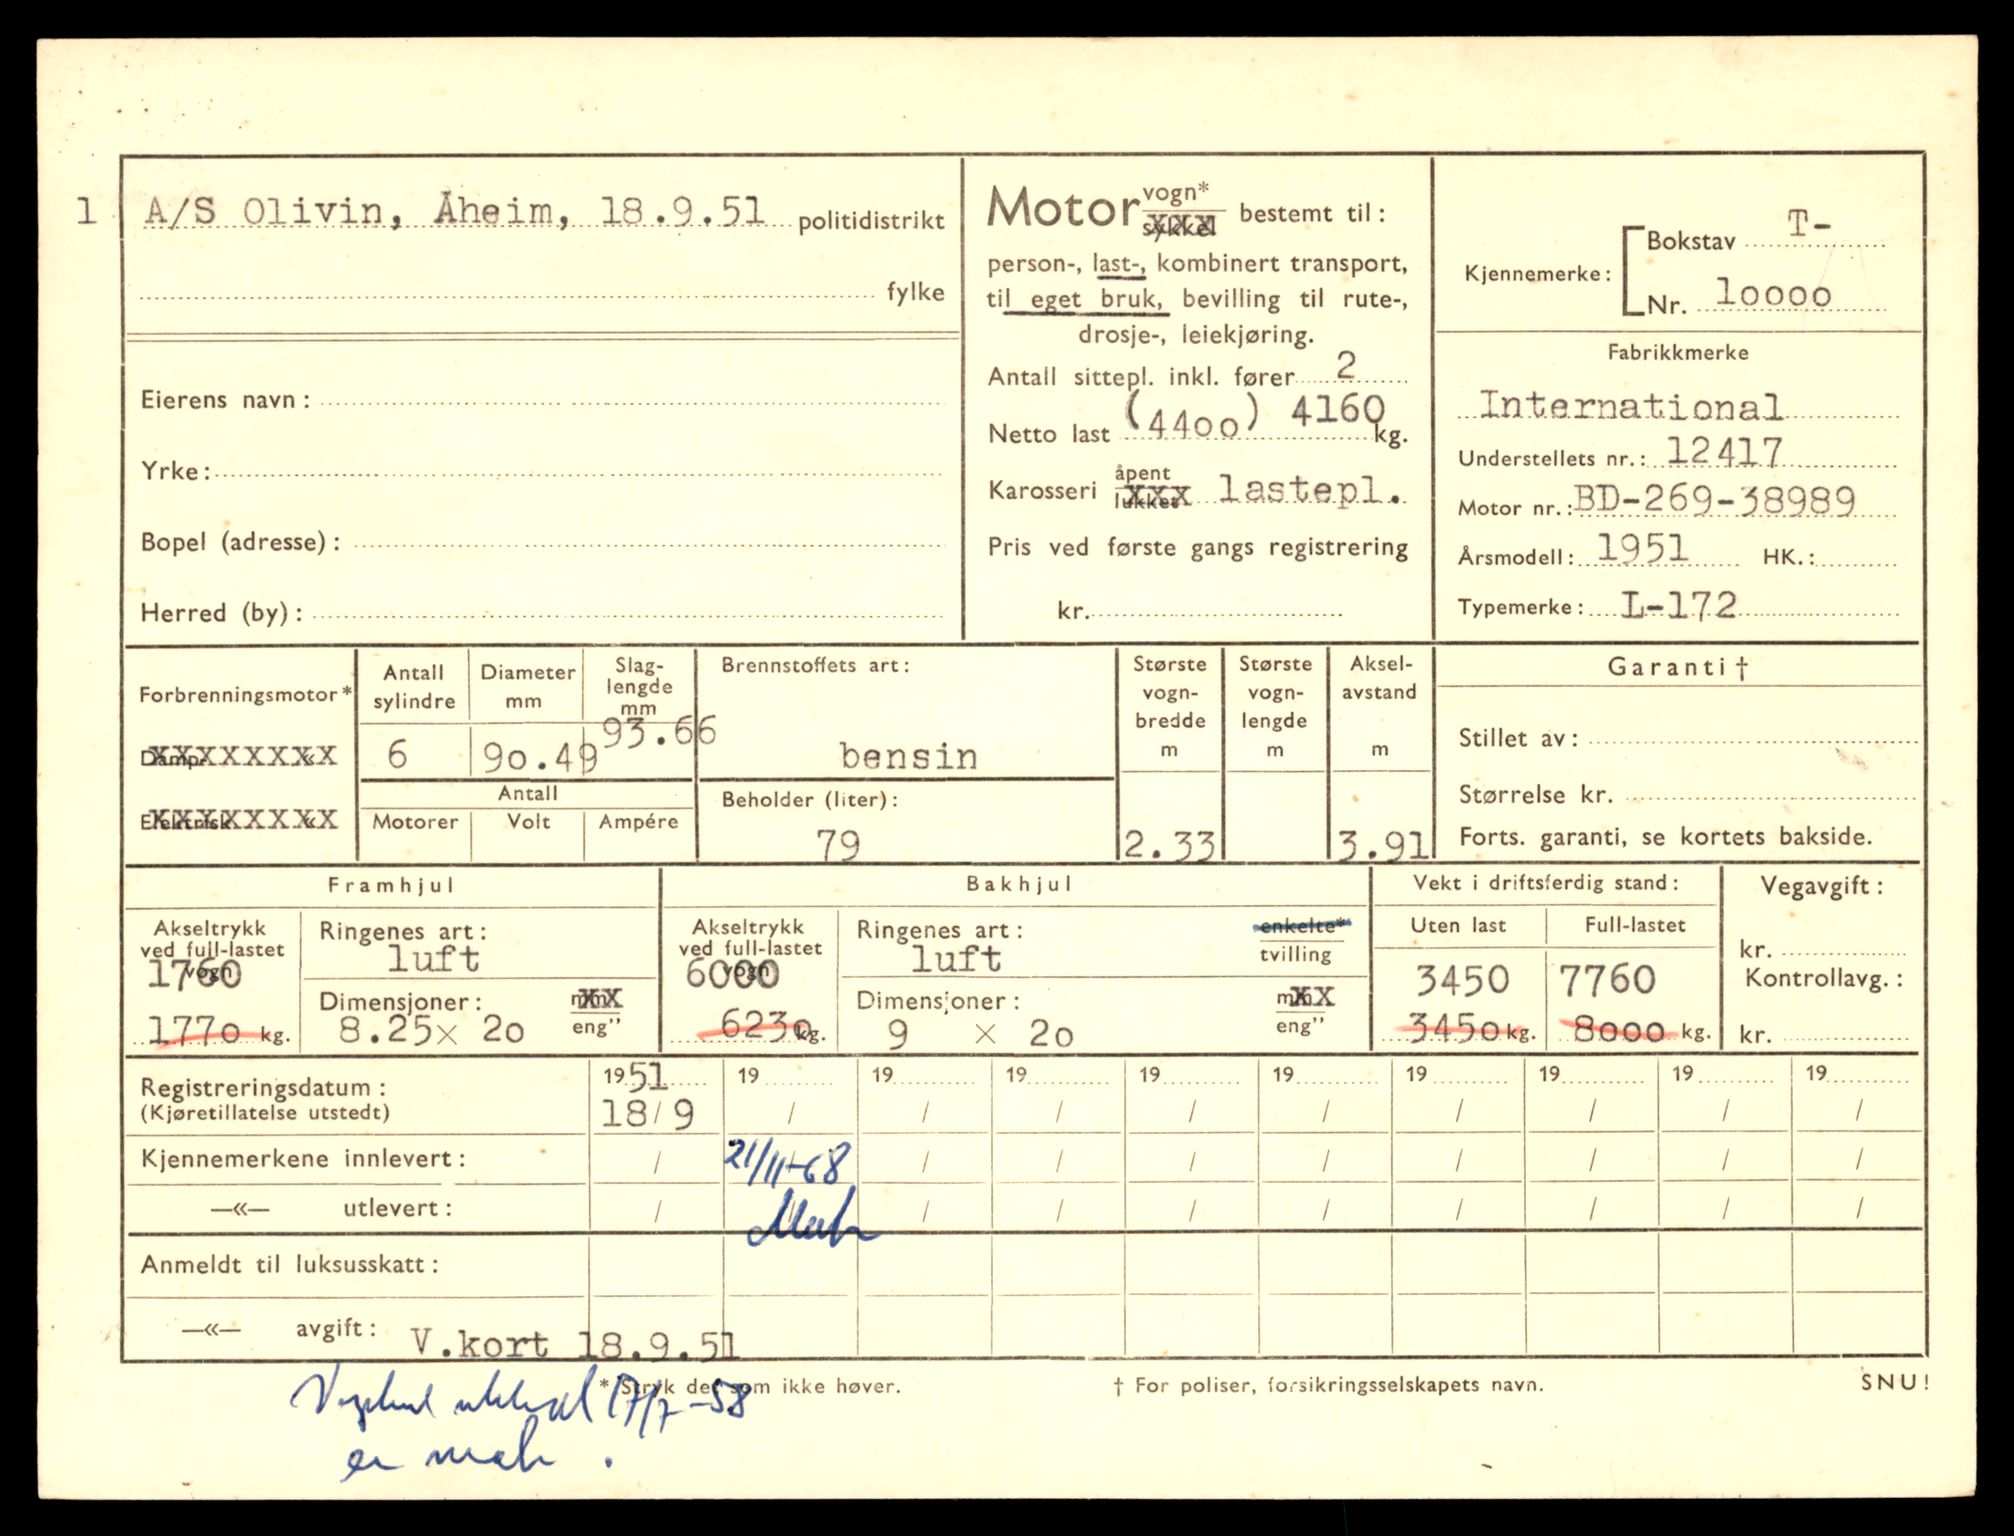 1 A/S Olivin, Åheim, 18.9.51 politidistrikt
fylke
Eierens navn:
Yrke:
Bopel (adresse):
Herred (by):
Motor vogn* sykkel bestemt til:
person-, last-, kombinert transport,
til eget bruk, bevilling til rute-,
drosje-, leiekjøring.
Antall sittepl. inkl. fører 2
Netto last (4400) 4160 kg.
Karosseri åpent lukket lastepl.
Pris ved første gangs registrering
kr.
Kjennemerke: Bokstav T-
Nr. 10000
Fabrikkmerke
International
Understellets nr.: 12417
Motor nr.: BD-269-38989
Årsmodell: 1951 HK.:
Typemerke: L-172
Forbrenningsmotor*
Damp- «
Elektrisk «
Antall sylindre
6
Diameter mm
90.49
Slag-
lengde
mm
93.66
Antall
Motorer Volt Ampére
Brennstoffets art:
bensin
Beholder (liter):
79
Største
vogn-
bredde
m
2.33
Største
vogn-
lengde
m
Aksel-
avstand
m
3.91
Garanti †
Stillet av:
Størrelse kr.
Forts. garanti, se kortets bakside.
Framhjul
Akseltrykk
ved full-lastet
vogn
1760
1770 kg.
Ringenes art:
luft
Dimensjoner: mm
8.25 × 20 eng"
Bakhjul
Akseltrykk
ved full-lastet
vogn
6000
6230 kg.
Ringenes art: enkelte*
luft tvilling
Dimensjoner: mm
9 × 20 eng"
Vekt i driftsferdig stand:
Uten last Full-lastet
3450 7760
3450 kg. 8000 kg.
Vegavgift:
kr.
Kontrollavg.:
kr.
Registreringsdatum: 1951 19 19 19 19 19 19 19 19 19
(Kjøretillatelse utstedt) 18/9 / / / / / / / / /
Kjennemerkene innlevert: / 21/11-68 / / / / / / / /
—«— utlevert: / / / / / / / / /
Anmeldt til luksusskatt:
—«— avgift: V.kort 18.9.51
* Stryk det som ikke høver. † For poliser, forsikringsselskapets navn. SNU!
17/7-58